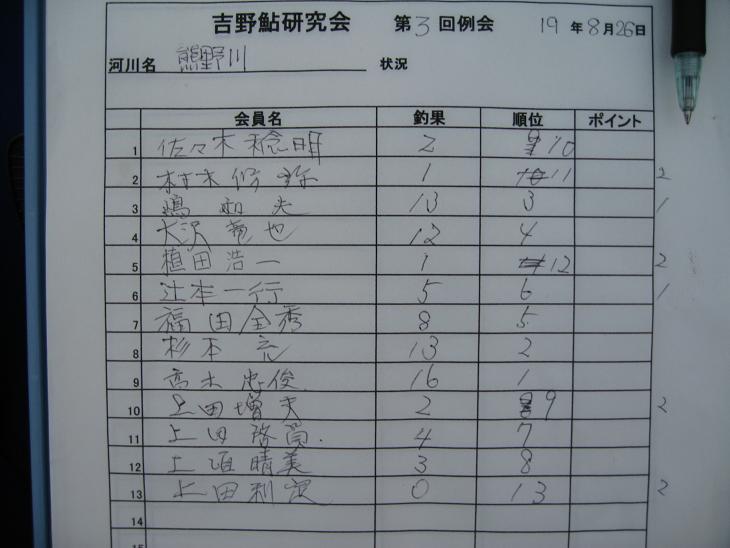 吉野鮎研究会 第3回例会 19年8月26日
河川名 熊野川 状況
会員名 釣果 順位 ポイント
1 佐々木稔明 2 10
2 村木修弥 1 11 2
3 嶋和夫 13 3 1
4 大沢竜也 12 4
5 植田浩一 1 12 2
6 辻本一行 5 6 1
7 福田全秀 8 5
8 杉本充 13 2
9 高木忠俊 16 1
10 上田増夫 2 9 2
11 上田啓 4 7
12 上 晴美 3 8
13 上田利 0 13 2
14
15